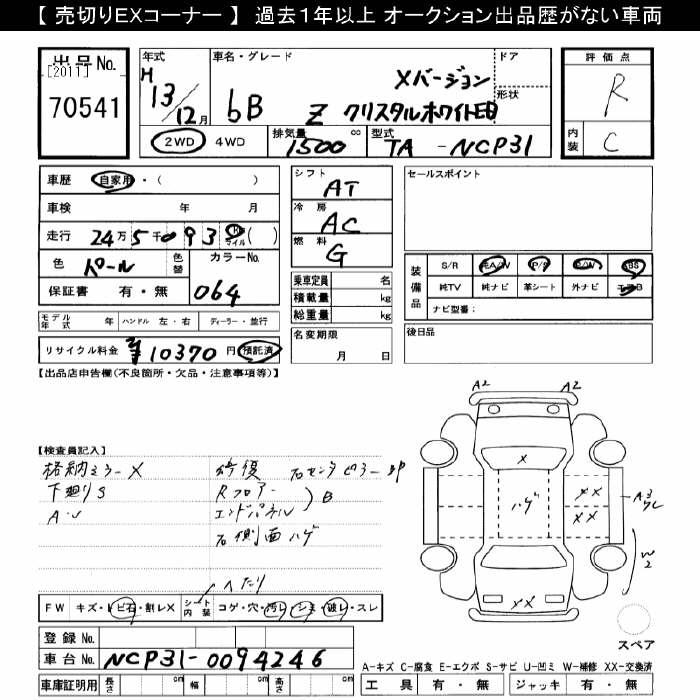 【 売切りEXコーナー 】 過去1年以上 オークション出品歴がない車両
出品No.
[2011]
70541
年式
H
13/12月
車名・グレード
bB Z Xバージョン
クリスタルホワイト
ドア
形状
評価点
R
内装
C
2WD 4WD
排気量
1500
cc
型式
TA - NCP31
車歴 自家用・( )
車検 年 月
走行 24万5千093 km マイル ( )
色 パール
色替
カラーNo.
064
保証書 有・無
シフト
AT
冷房
AC
燃料
G
乗車定員 名
積載量 kg
総重量 kg
名変期限
月 日
セールスポイント
装備品
S/R 純A/W P/S P/W ABS
純TV 純ナビ 革シート 外ナビ
ナビ型番:
後日品
モデル年式 年 ハンドル 左・右 ディーラー・並行
リサイクル料金 ¥10370円 預託済
【出品店申告欄(不良箇所・欠品・注意事項等)】
【検査員記入】
格納ミラーX
下廻りS
修復 右センターピラー
Rフロアー
エンドパネル
B
右側面ハゲ
ヘたり
FW キズ・トビ石・割レX
シート内装 コゲ・穴・汚レ・シミ・破レ・スレ
登録No.
車台No. NCP31-0094246
車庫証明用 長さ cm 幅 cm 高さ cm
A2 A2
X
ハゲ
XX
XX
A3
W2
XX
スペア
A-キズ C-腐食 E-エクボ S-サビ U-凹ミ W-補修 XX-交換済
工具 有・無 ジャッキ 有・無